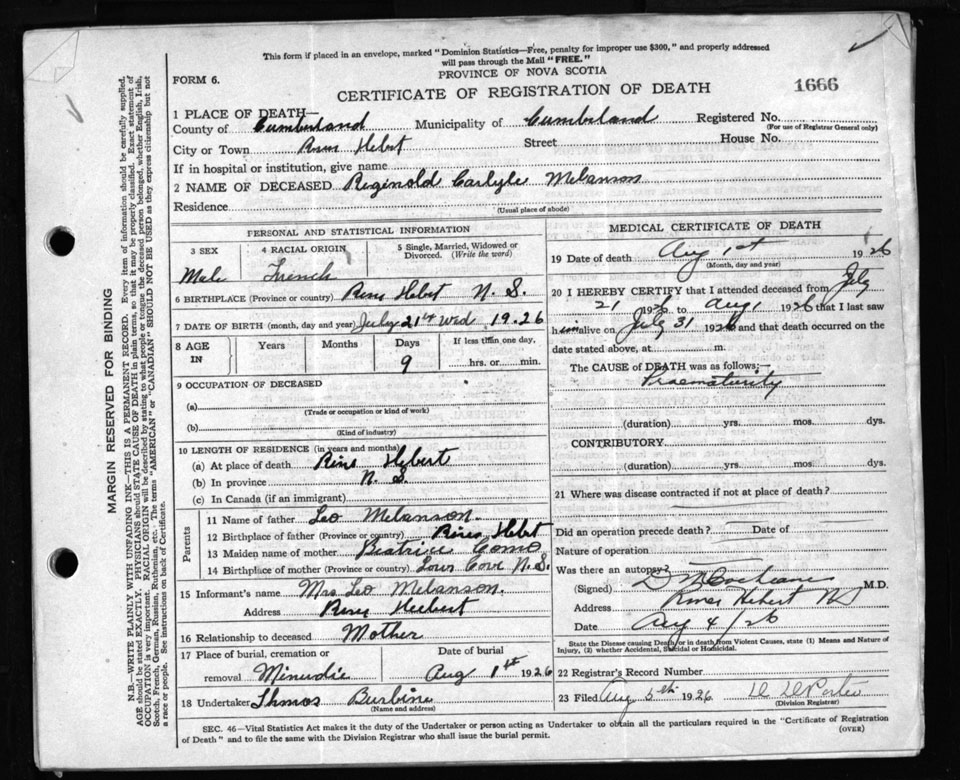 This form if placed in an envelope, marked "Dominion Statistics—Free, penalty for improper use $300," and properly addressed
will pass through the Mail "FREE."
PROVINCE OF NOVA SCOTIA
FORM 6.
CERTIFICATE OF REGISTRATION OF DEATH
1666
MARGIN RESERVED FOR BINDING
N.B.—WRITE PLAINLY WITH UNFADING INK—THIS IS A PERMANENT RECORD. Every item of information should be carefully supplied.
AGE should be stated EXACTLY. PHYSICIANS should STATE CAUSE OF DEATH in plain terms, so that it may be properly classified. Exact statement of
OCCUPATION is very important. RACIAL ORIGIN will be described by stating to what people or tongue the deceased person belonged, whether English, Irish,
Scotch, French, German, Russian, Ruthenian, etc. The terms "AMERICAN" or "CANADIAN" SHOULD NOT BE USED as they express citizenship but not
a race or people. See instructions on back of Certificate.
1 PLACE OF DEATH—
County of Cumberland Municipality of Cumberland Registered No.
(For use of Registrar General only)
City or Town River Hebert Street House No.
If in hospital or institution, give name
2 NAME OF DECEASED Reginold Carlyle Melanson
Residence
(Usual place of abode)
PERSONAL AND STATISTICAL INFORMATION
3 SEX 4 RACIAL ORIGIN 5 Single, Married, Widowed or
Divorced. (Write the word)
Male French
6 BIRTHPLACE (Province or country) River Hebert N. S.
7 DATE OF BIRTH (month, day and year) July 21st Wed 1926
8 AGE IN Years Months Days If less than one day,
9 hrs. or min.
9 OCCUPATION OF DECEASED
(a)
(Trade or occupation or kind of work)
(b)
(Kind of industry)
10 LENGTH OF RESIDENCE (in years and months)
(a) At place of death River Hebert
(b) In province N. S.
(c) In Canada (if an immigrant)
Parents
11 Name of father Leo Melanson.
12 Birthplace of father (Province or country) River Hebert
13 Maiden name of mother Beatrice Como
14 Birthplace of mother (Province or country) Lower Cove N.S.
15 Informant's name Mrs Leo Melanson.
Address River Heebert
16 Relationship to deceased Mother
17 Place of burial, cremation or Date of burial
removal Minudie Aug 1st 1926
18 Undertaker Thmos Burbine
(Name and address)
MEDICAL CERTIFICATE OF DEATH
19 Date of death Aug 1st 1926
(Month, day and year)
20 I HEREBY CERTIFY that I attended deceased from July
21 1926 to Aug 1 1926 that I last saw
him alive on July 31 1926 and that death occurred on the
date stated above, at m.
The CAUSE of DEATH was as follows:—
Praematurity
(duration) yrs. mos dys.
CONTRIBUTORY
(duration) yrs. mos. dys.
21 Where was disease contracted if not at place of death?
Did an operation precede death? Date of
Nature of operation
Was there an autopsy?
(Signed) D M Cochrane M.D.
Address River Hebert NS
Date Aug 4/26
State the Disease causing Death, or in death from Violent Causes, state (1) Means and Nature of
Injury, (2) whether Accidental, Suicidal or Homicidal.
22 Registrar's Record Number
23 Filed Aug 5th 1926
(Division Registrar)
SEC. 46—Vital Statistics Act makes it the duty of the Undertaker or person acting as Undertaker to obtain all the particulars required in the "Certificate of Registration
of Death" and to file the same with the Division Registrar who shall issue the burial permit.
(OVER)